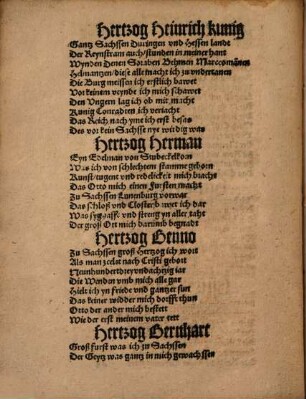 Hertzog Heinrich kunig
Gantz Sachssen Duringen vnd Hessen landt
Der Reynstram auch stunden in meiner hant
Wynden Denen Soraben Behmen Marcomanen
Helmantzen diese alle macht ich zu vndertanen
Die Burg meissen ich erstlich bawet
Vor keinem veynde ich mich schawet
Den Vngern lag ich ob mit macht
Kunig Conraden ich veriacht
Das Reich nach yme ich erst besas
Des vor kein Sachsse nye wirdig was
Hertzog Herman
Eyn Edelman von Stubeckelkorn
Was ich von schlechtem stamme geborn
Kunst tugent vnd redelickeit mich bracht
Das Otto mich einen Fursten macht
Zu Sachssen Lunenburg vorwar
Das schloß vnd Closter bawet ich dar
Was syghafft vnd streng yn aller taht
Der groß Ott mich darumb begnadt
Hertzog Benno
Zu Sachssen groß Hertzog ich wort
Als man zcelt nach Cristi gebort
Neunhundertdreyundachtzig iar
Die Wenden vmb mich alle gar
Hielt ich yn friede vnd gantzer sun
Das keiner widder mich dorfft thun
Otto der ander mich bestett
Wie der erst meinem vater tett
Hertzog Bernhart
Groß furst was ich zu Sachssen
Der Geytz was gantz in mich gewachssen